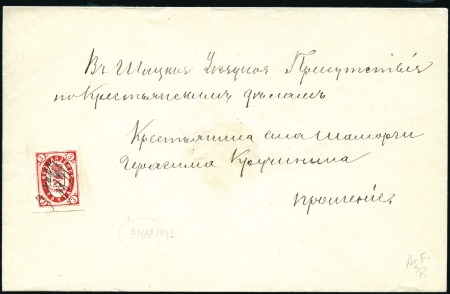 Въ Шацкое Уѣздное Присутствіе
по Крестьянскимъ дѣламъ
Крестьянина села Шаморги
Герасима Кручинина
прошеніе,